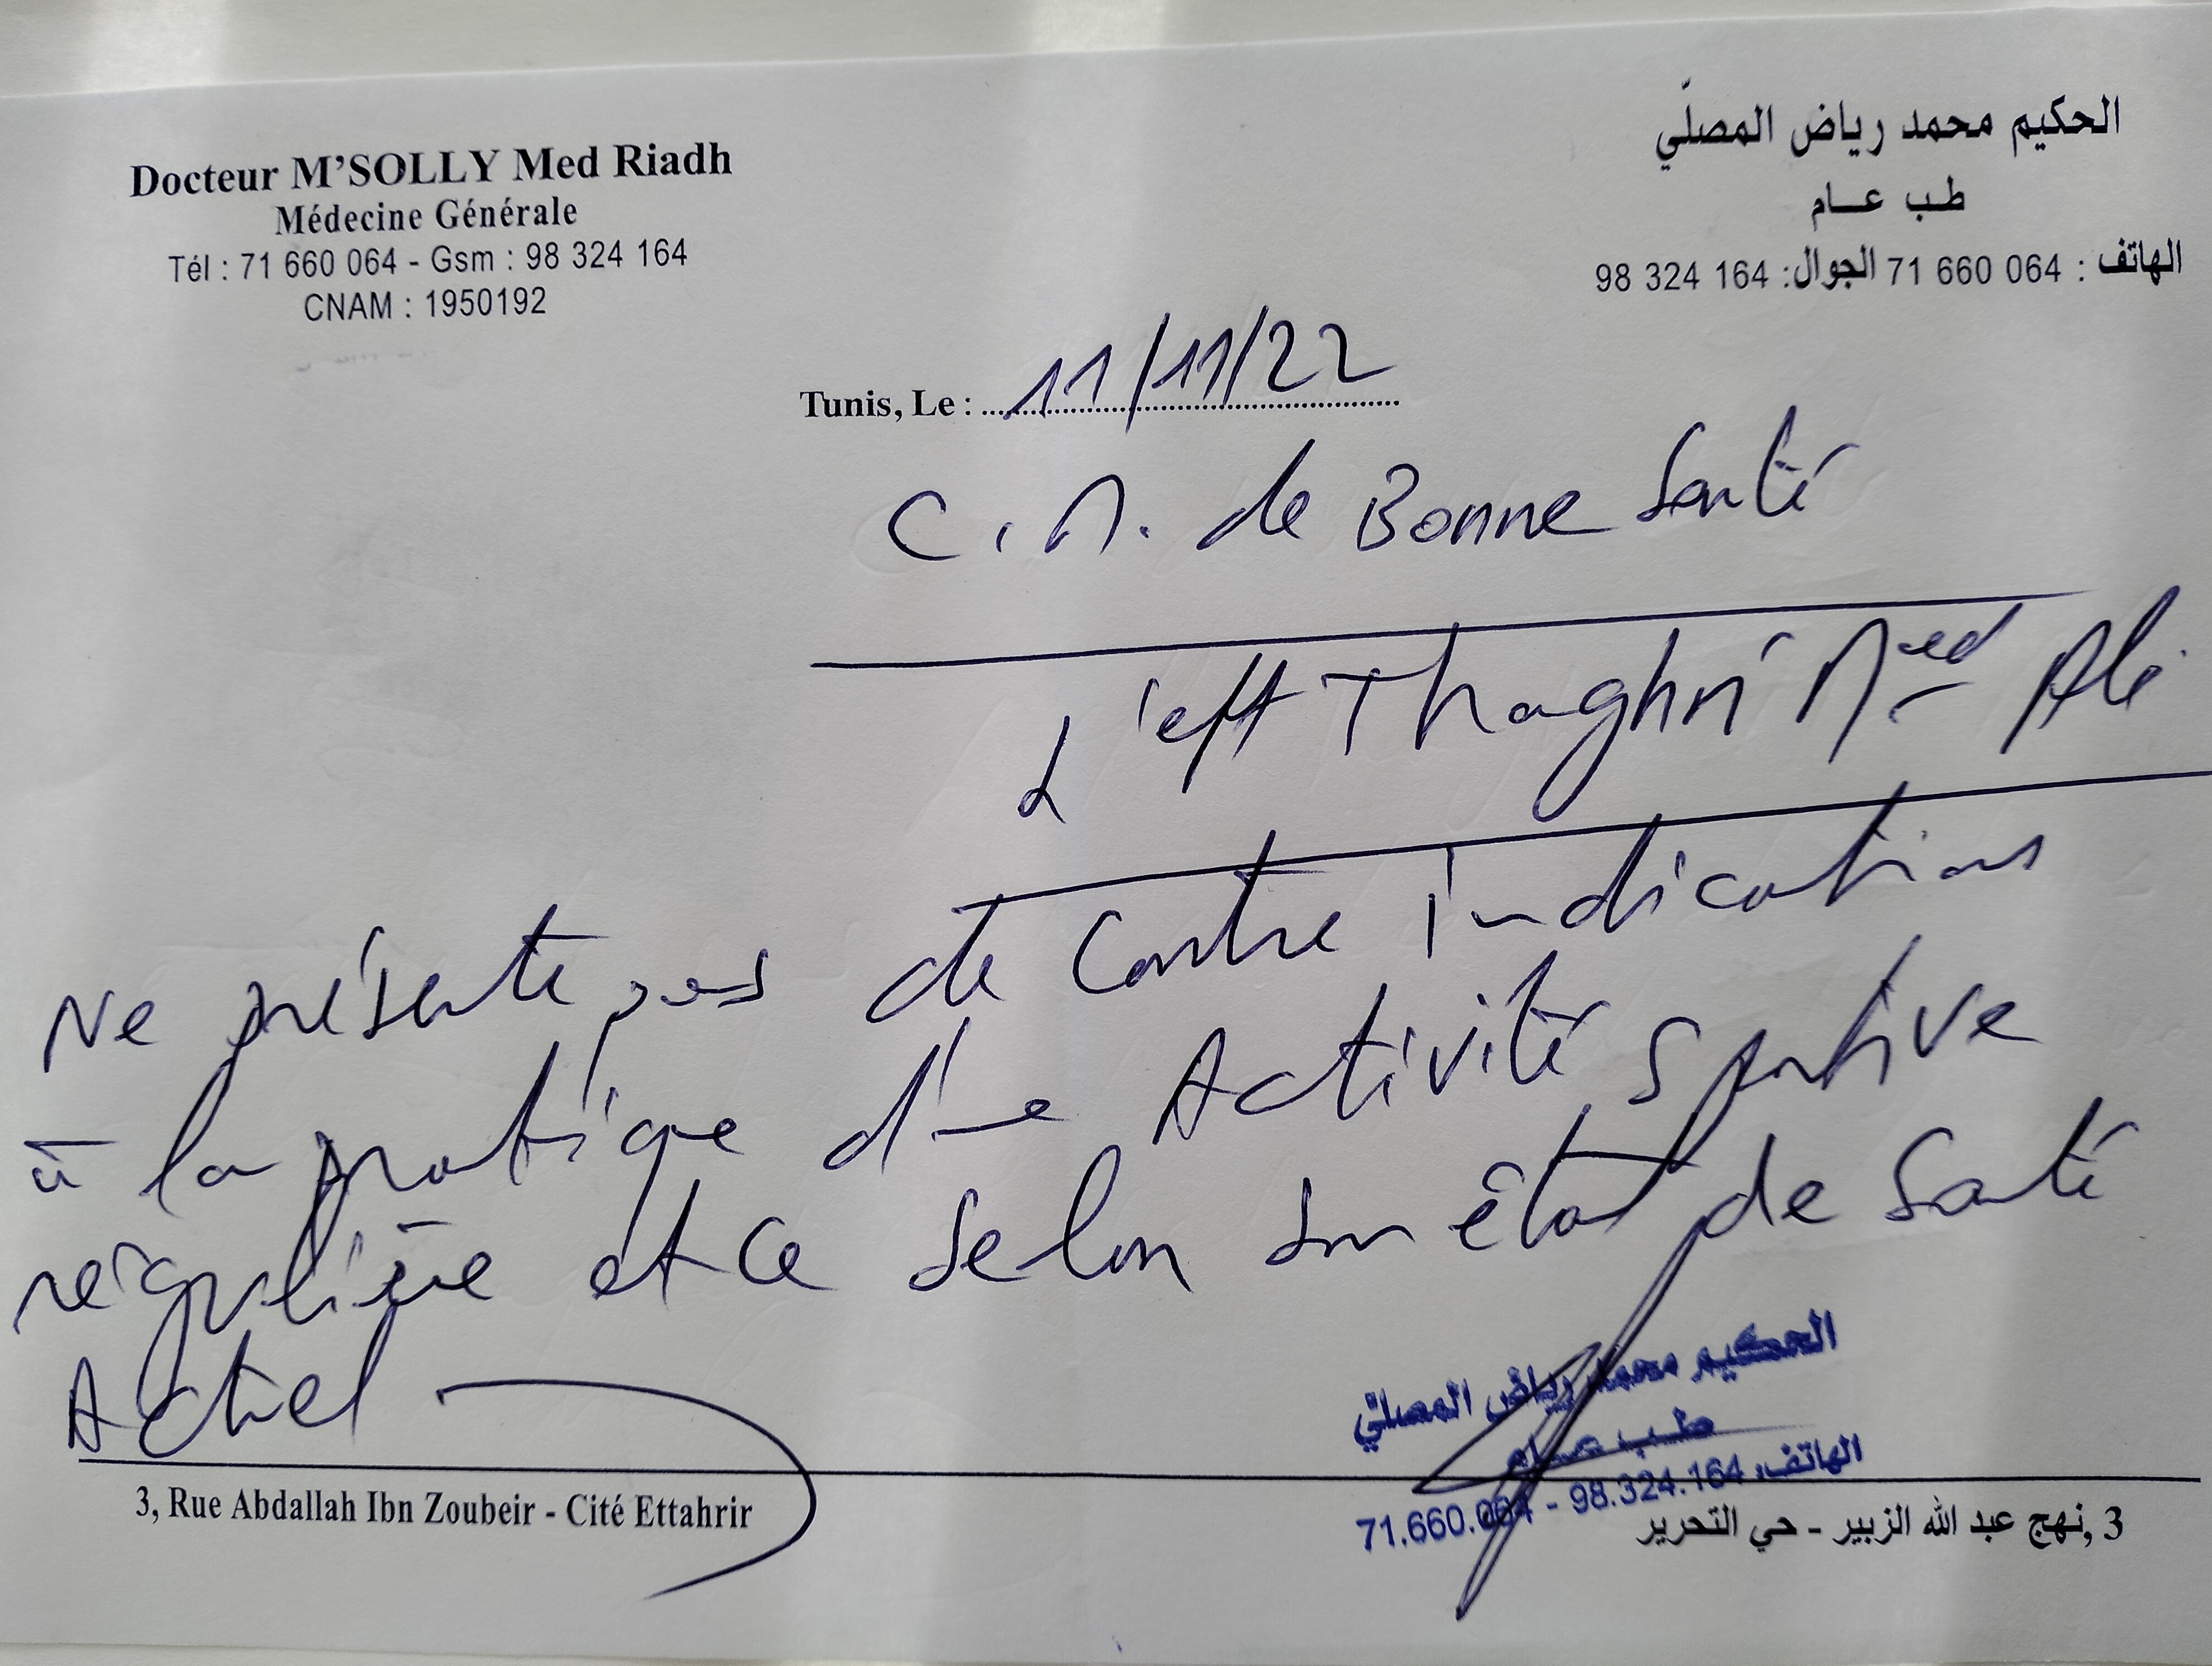 Docteur M'SOLLY Med Riadh
Médecine Générale
Tél : 71 660 064 - Gsm : 98 324 164
CNAM : 1950192
الحكيم محمد رياض المصلّي
طب عام
الهاتف : 71 660 064 الجوال: 98 324 164
Tunis, Le : 11/11/22
C.M. de Bonne Santé
L'eft Thaghri Med Ali
Ne présente pas de contre indications
à la pratique d'une Activité sportive
régulière et ce selon son état de santé
Actuel
الحكيم محمد رياض المصلي
طب عام
الهاتف: 98.324.164 - 71.660.064
3, Rue Abdallah Ibn Zoubeir - Cité Ettahrir
3, نهج عبد الله الزبير - حي التحرير